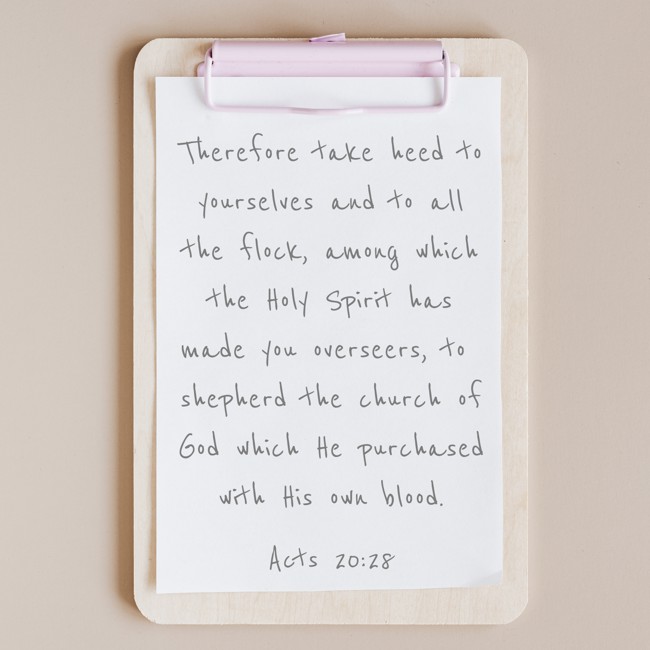 Therefore take heed to
yourselves and to all
the flock, among which
the Holy Spirit has
made you overseers, to
shepherd the church of
God which He purchased
with His own blood.
Acts 20:28